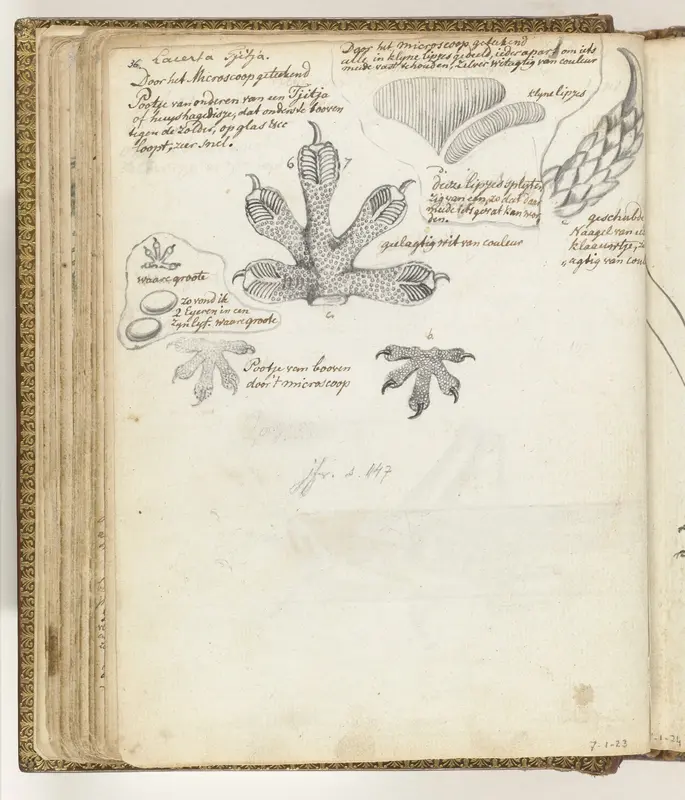 36. Lacerta Tjitja.
Door het Microscoop getekend
Pootje van onderen van een Tjitja
of huyshagedisje, dat onderste booven
tegen de zolder, op glas &c
loopt, zeer snel.
Door het microscoop getekend
alle in klyne lipjes gedeeld, ieder apart om iets
meede vast te houden, zilver witagtig van couleur
klyne lipjes
deeze lipjes
zig van een, zo dat daar
meede iets gevat kan wor
den.
geschubde
Naagel van
klaauwtje,
agtig van
6
7
geelagtig wit van couleur
a
waare groote
zo vond ik
2 Eyeren in een
zyn lyf. waare groote
Pootje van booven
door 't microscoop
b
147
7-1-23
-1-24